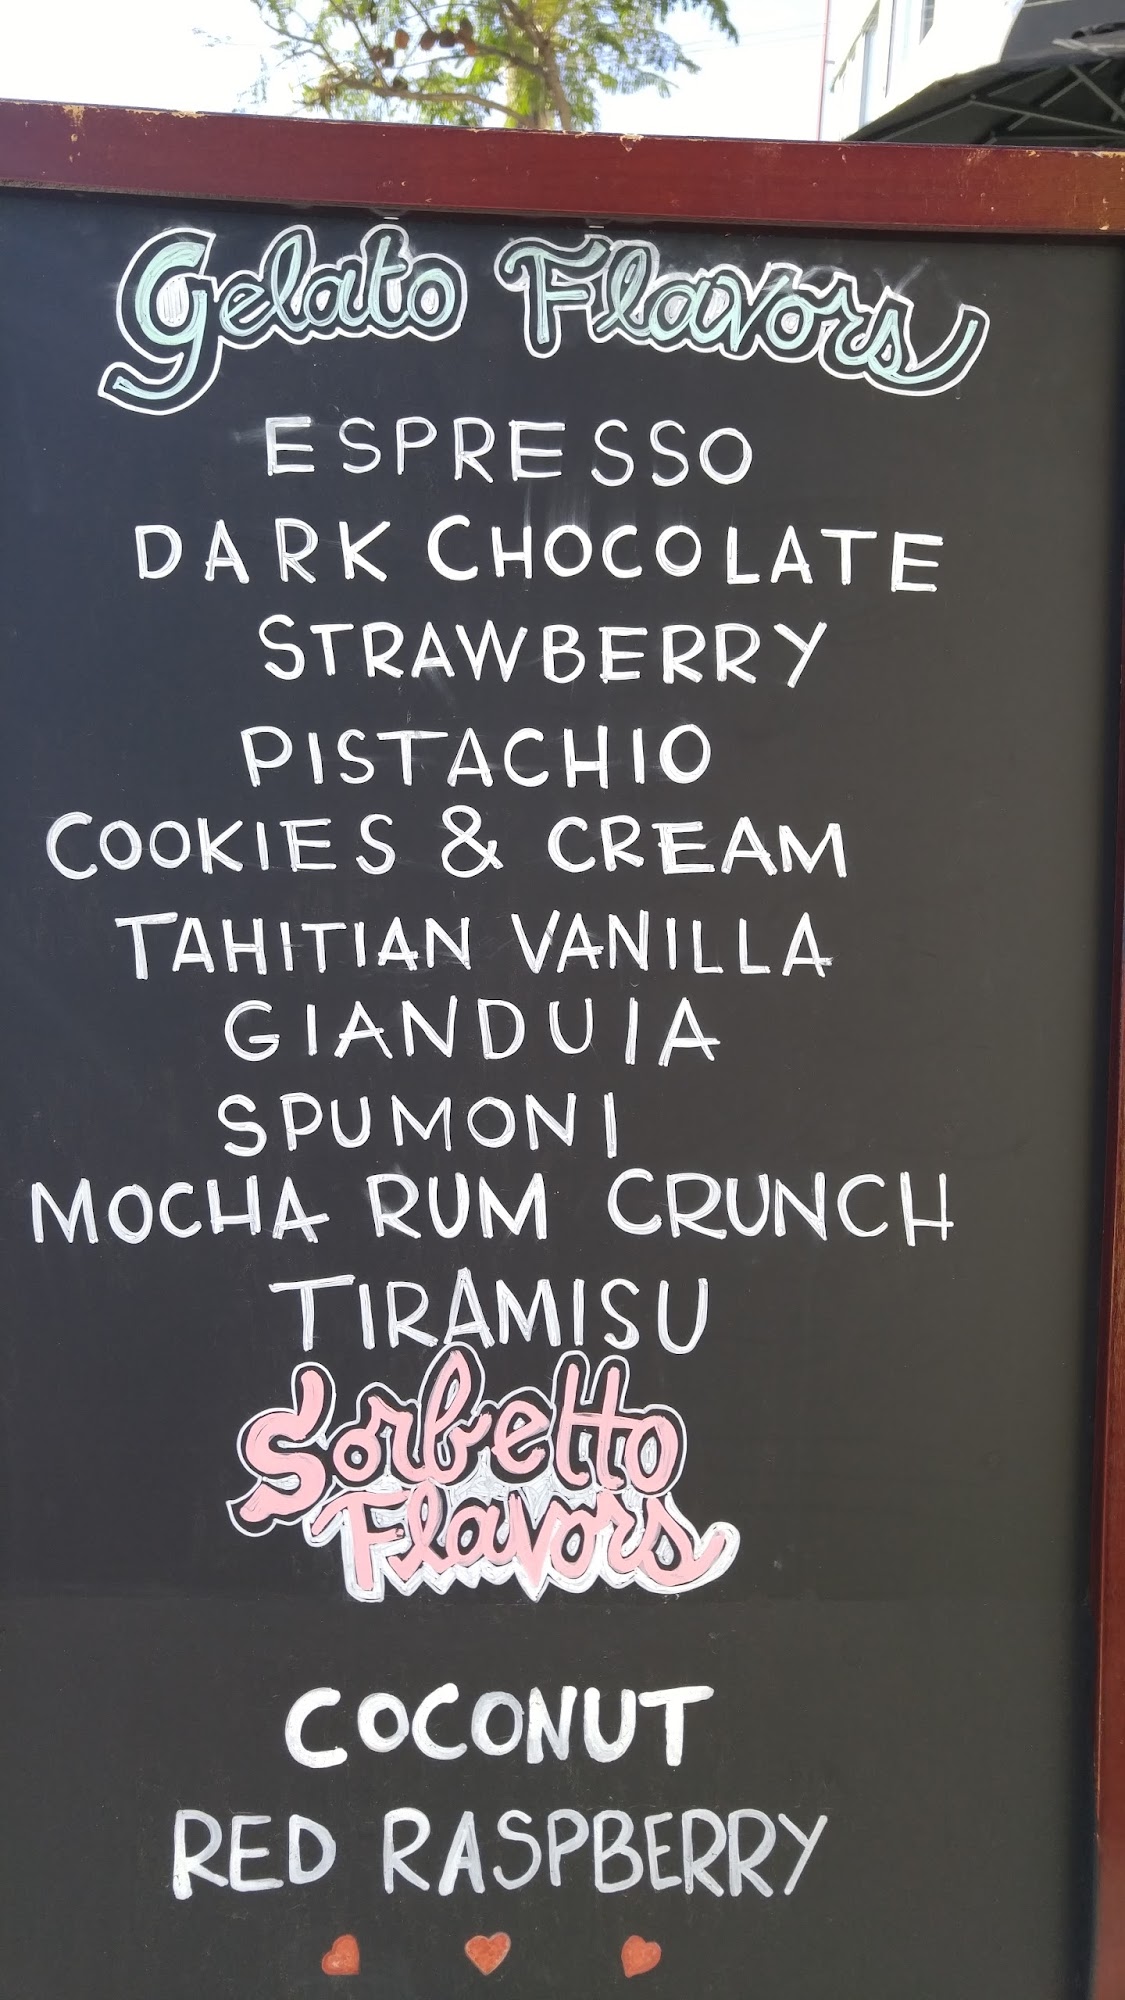 Gelato Flavors
ESPRESSO
DARK CHOCOLATE
STRAWBERRY
PISTACHIO
COOKIES & CREAM
TAHITIAN VANILLA
GIANDUIA
SPUMONI
MOCHA RUM CRUNCH
TIRAMISU
Sorbetto
Flavors
COCONUT
RED RASPBERRY